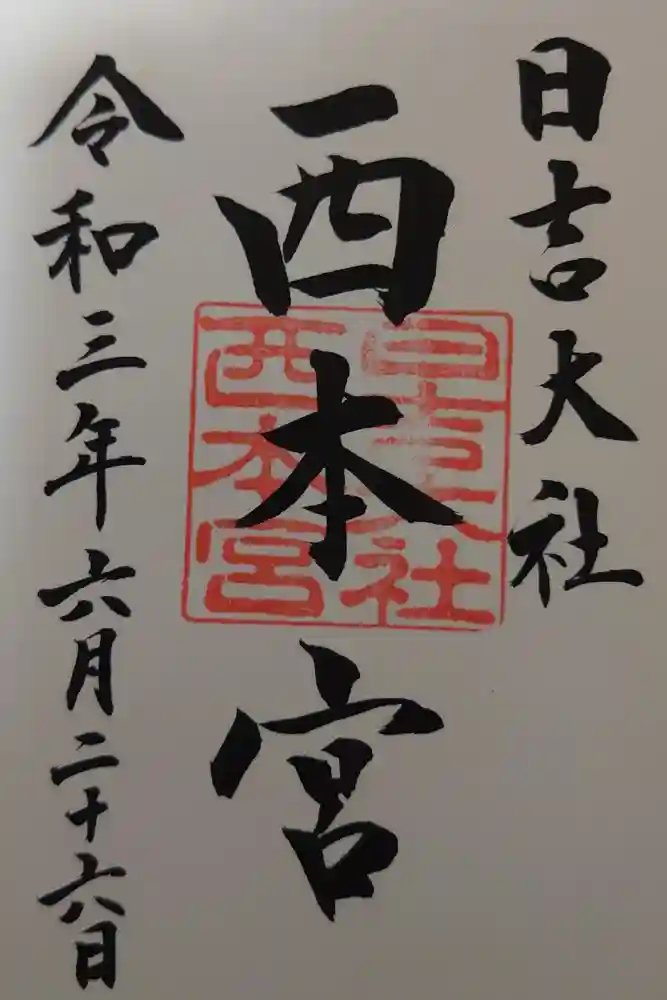 日吉大社
西本宮
日吉大社
西本宮
令和三年六月二十六日